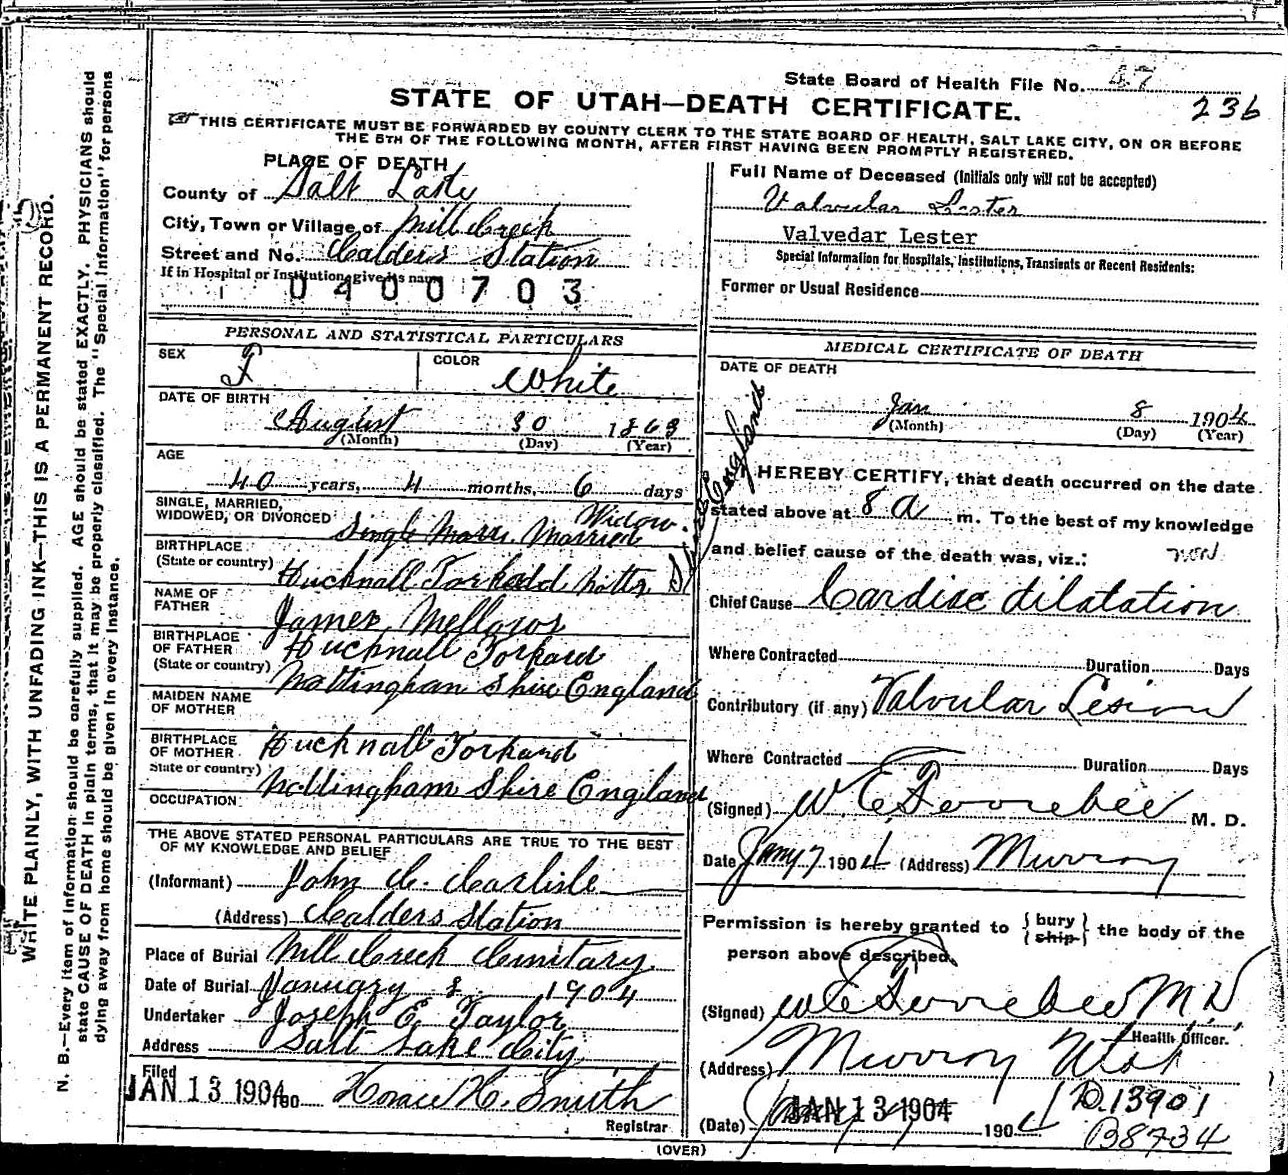 State Board of Health File No. 47
236
STATE OF UTAH—DEATH CERTIFICATE.
THIS CERTIFICATE MUST BE FORWARDED BY COUNTY CLERK TO THE STATE BOARD OF HEALTH, SALT LAKE CITY, ON OR BEFORE
THE 5TH OF THE FOLLOWING MONTH, AFTER FIRST HAVING BEEN PROMPTLY REGISTERED.
PLACE OF DEATH
County of Salt Lake
City, Town or Village of Mill Creek
Street and No. Calders Station
If in Hospital or Institution, give its name
0400703
PERSONAL AND STATISTICAL PARTICULARS
SEX F COLOR White
DATE OF BIRTH
August 30 1863
(Month) (Day) (Year)
AGE
40 years, 4 months, 6 days
SINGLE, MARRIED,
WIDOWED, OR DIVORCED Single Marr. Married Widow.
BIRTHPLACE
(State or country) Hucknall Torkard Notts Shire England
NAME OF
FATHER James Mellows
BIRTHPLACE
OF FATHER Hucknall Torkard
(State or country) Nottingham Shire England
MAIDEN NAME
OF MOTHER
BIRTHPLACE
OF MOTHER Hucknall Torkard
State or country) Nottingham Shire England
OCCUPATION
THE ABOVE STATED PERSONAL PARTICULARS ARE TRUE TO THE BEST
OF MY KNOWLEDGE AND BELIEF
(Informant) John C. Carlisle
(Address) Calders Station
Place of Burial Mill Creek Cimitary
Date of Burial January 8 1904
Undertaker Joseph E Taylor
Address Salt Lake City
Filed
JAN 13 1904 190 Horace H. Smith
Registrar
Full Name of Deceased (Initials only will not be accepted)
Valvular Lester
Valvedar Lester
Special Information for Hospitals, Institutions, Transients or Recent Residents:
Former or Usual Residence
MEDICAL CERTIFICATE OF DEATH
DATE OF DEATH
Jan 8 1904
(Month) (Day) (Year)
I HEREBY CERTIFY, that death occurred on the date
stated above at 8 a m. To the best of my knowledge
and belief cause of the death was, viz.:
Chief Cause Cardiac dilatation
Where Contracted Duration Days
Contributory (if any) Valvular Lesion
Where Contracted Duration Days
(Signed) W. E. Ferrebee M. D.
Date Jany 7 1904 (Address) Murray
Permission is hereby granted to { bury ship } the body of the
person above described.
(Signed) W E Ferrebee M.D.
Health Officer.
(Address) Murray Utah
(Date) JAN 13 1904 1904
D.13901
B8734
(OVER)
WHITE PLAINLY, WITH UNFADING INK—THIS IS A PERMANENT RECORD.
N. B.—Every item of information should be carefully supplied. AGE should be stated EXACTLY. PHYSICIANS should
state CAUSE OF DEATH in plain terms, that it may be properly classified. The "Special Information" for persons
dying away from home should be given in every instance.